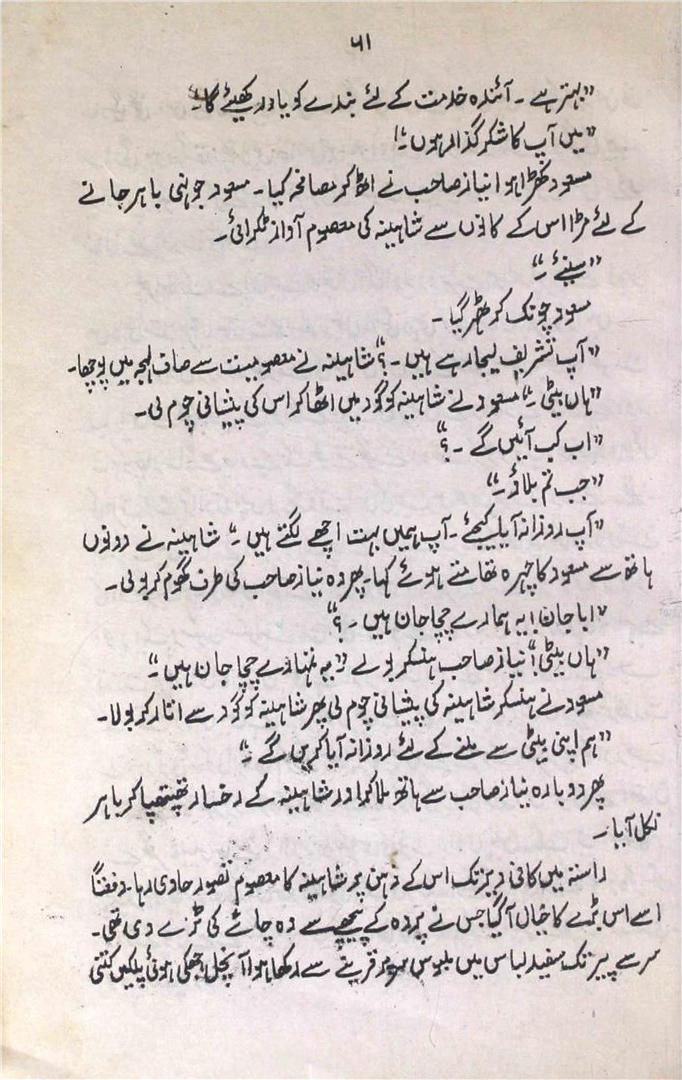 ۵۱
”بہتر ہے ۔ آئندہ خدمت کے لئے بندے کو یاد رکھیئے گا۔“
”میں آپ کا شکر گذار ہوں۔“!
مسعود کھڑا ہوا نیاز صاحب نے اٹھ کر مصافحہ کیا۔ مسعود جونہی باہر جانے
کے لئے مڑا اس کے کانوں سے شاہینہ کی معصوم آواز ٹکرائی۔
”سنیئے۔“
مسعود چونک کر ٹھہر گیا ۔
”آپ تشریف لیجا رہے ہیں ۔؟“ شاہینہ نے معصومیت سے صاف لہجہ میں پوچھا۔
”ہاں بیٹی۔“ مسعود نے شاہینہ کو گود میں اٹھا کر اس کی پیشانی چوم لی۔
”اب کب آئیں گے ۔؟“
”جب تم بلاؤ۔“
”آپ روزانہ آیا کیجئے ۔ آپ ہمیں بہت اچھے لگتے ہیں ۔“ شاہینہ نے دونوں
ہاتھ سے مسعود کا چہرہ تھامتے ہوئے کہا۔ پھر وہ نیاز صاحب کی طرف گھوم کر بولی۔
”ابا جان! یہ ہمارے چچا جان ہیں ۔؟“
”ہاں بیٹی!“ نیاز صاحب ہنسکر بولے ”یہ تمہارے چچا جان ہیں۔“
مسعود نے ہنسکر شاہینہ کی پیشانی چوم لی پھر شاہینہ کو گود سے اتار کر بولا۔
”ہم اپنی بیٹی سے ملنے کے لئے روزانہ آیا کریں گے۔“
پھر دوبارہ نیاز صاحب سے ہاتھ ملا کر اور شاہینہ کے رخسار تھپتھپا کر باہر
نکل آیا ۔
راستہ میں کافی دیر تک اس کے ذہن پر شاہینہ کا معصوم تصور حاوی رہا۔ دفعتاً
اسے اس کا خیال آ گیا جس نے پردہ کے پیچھے سے وہ چائے کی ٹرے دی تھی۔
سر سے پیر تک سفید لباس میں ملبوس سر پر قرینے سے رکھا ہوا آنچل جھکی ہوئی پلکیں کتنی